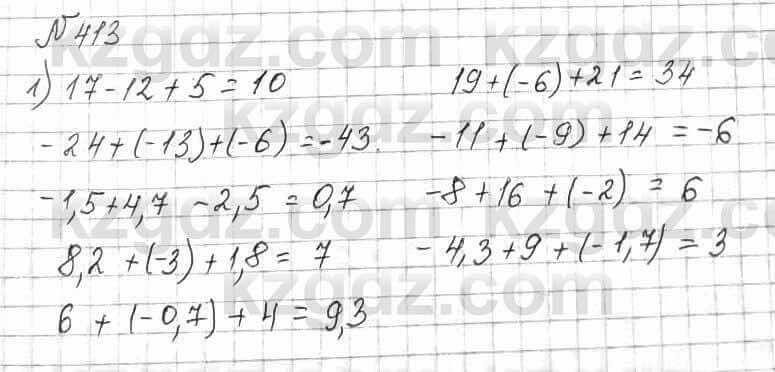 №413
1) 17-12+5=10 19+(-6)+21=34
-24+(-13)+(-6)=-43. -11+(-9)+14=-6
-1,5+4,7-2,5=0,7 -8+16+(-2)=6
8,2+(-3)+1,8=7 -4,3+9+(-1,7)=3
6+(-0,7)+4=9,3
kzgdz.com